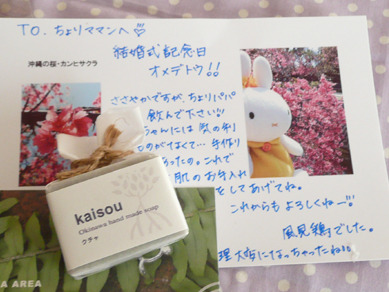 TO. ちょりママンへ♡
結婚式記念日
オメデトウ!!
沖縄の桜・カンヒサクラ
ささやかですが、ちょりパパ
飲んで下さい!
ちゃんには
のがなくて… 手作り
あったの。これで
肌のお手入れ
をしてあげてね。
これからもよろしくねー!!
風見鶏でした。
になっちゃったね
kaisou
Okinawa hand made soap
クチャ
A AREA